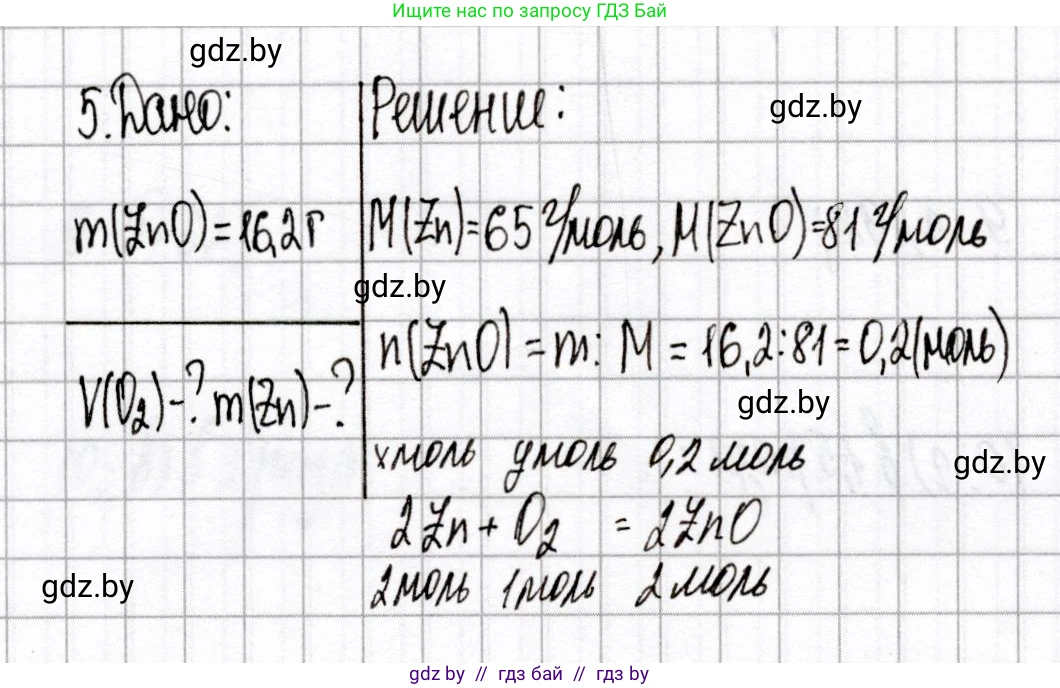 Ищите нас по запросу ГДЗ Бай
gdz.by
5. Дано:
Решение:
gdz.by
m(ZnO) = 16,2 г
M(Zn)=65 г/моль, M(ZnO)=81 г/моль
gdz.by
n(ZnO) = m : M = 16,2:81=0,2(моль)
V(O₂)-? m(Zn)-?
gdz.by
x моль y моль 0,2 моль
gdz.by
2Zn + O₂ = 2ZnO
gdz.by
2 моль 1 моль 2 моль
gdz.by // гдз бай // гдз by